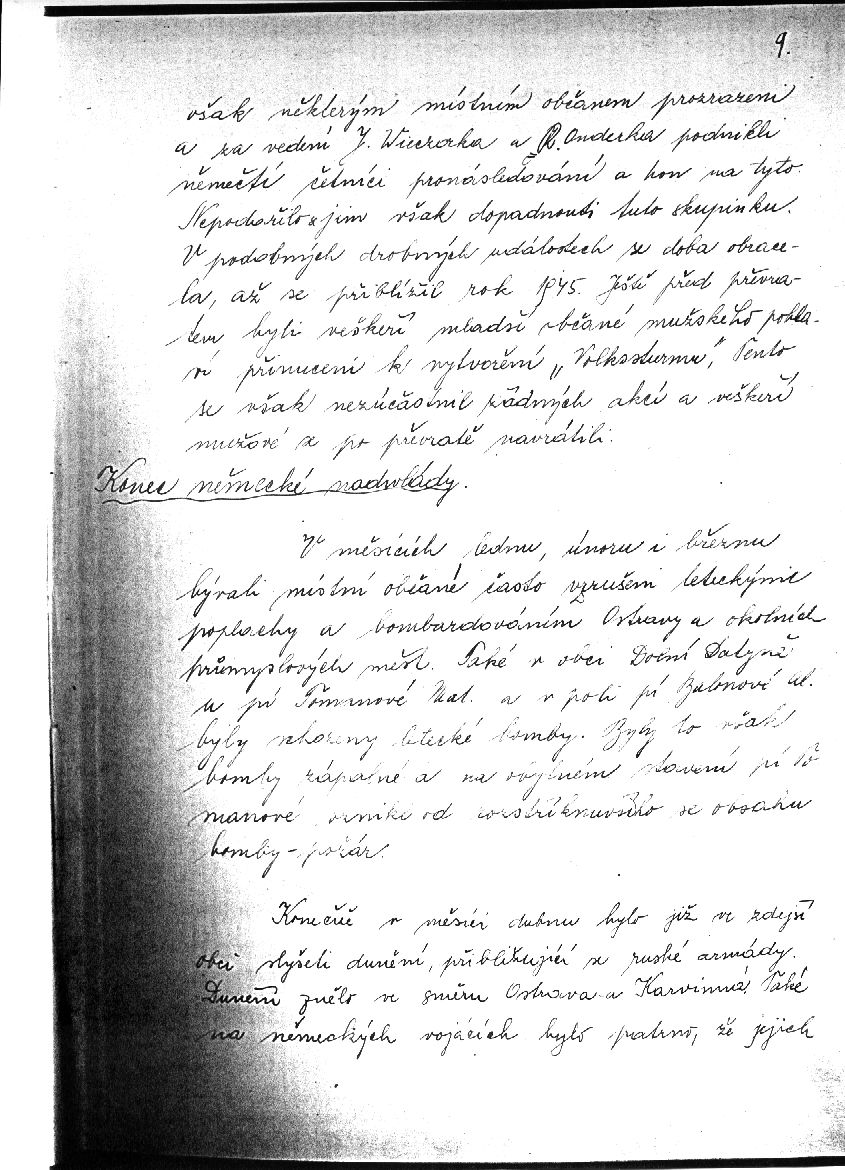 9.
však některým místním občanem prozrazeni
a za vedení J. Wieczorka a R. Onderka podnikli
němečtí četníci pronásledování a hon na tyto.
Nepodařilo se jim však dopadnouti tuto skupinku.
V podobných drobných událostech se doba obrace-
la, až se přiblížil rok 1945. Ještě před převra-
tem byli veškeří mladší občané mužského pohla-
ví přinuceni k vytvoření „Volkssturmu", Tento
se však nezúčastnil žádných akcí a veškeří
mužové se po převratě navrátili.
Konec německé nadvlády.
V měsících lednu, únoru i březnu
bývali místní občané často vzrušeni leteckými
poplachy a bombardováním Ostravy a okolních
průmyslových měst. Také v obci Dolní Datyně
u pí Tomanové Mat. a v poli pí Babonové Al.
byly shozeny letecké bomby. Byly to však
bomby zápalné a na obytném stavení pí To
manové vzniké od rozstříknuvšího se obsahu
bomby - požár.
Konečně v měsíci dubnu bylo již ve zdejší
obci slyšeti dunění, přibližující se ruské armády.
Dunění znělo ve směru Ostrava a Karvinná. Také
na německých vojácích bylo patrno, že jejich